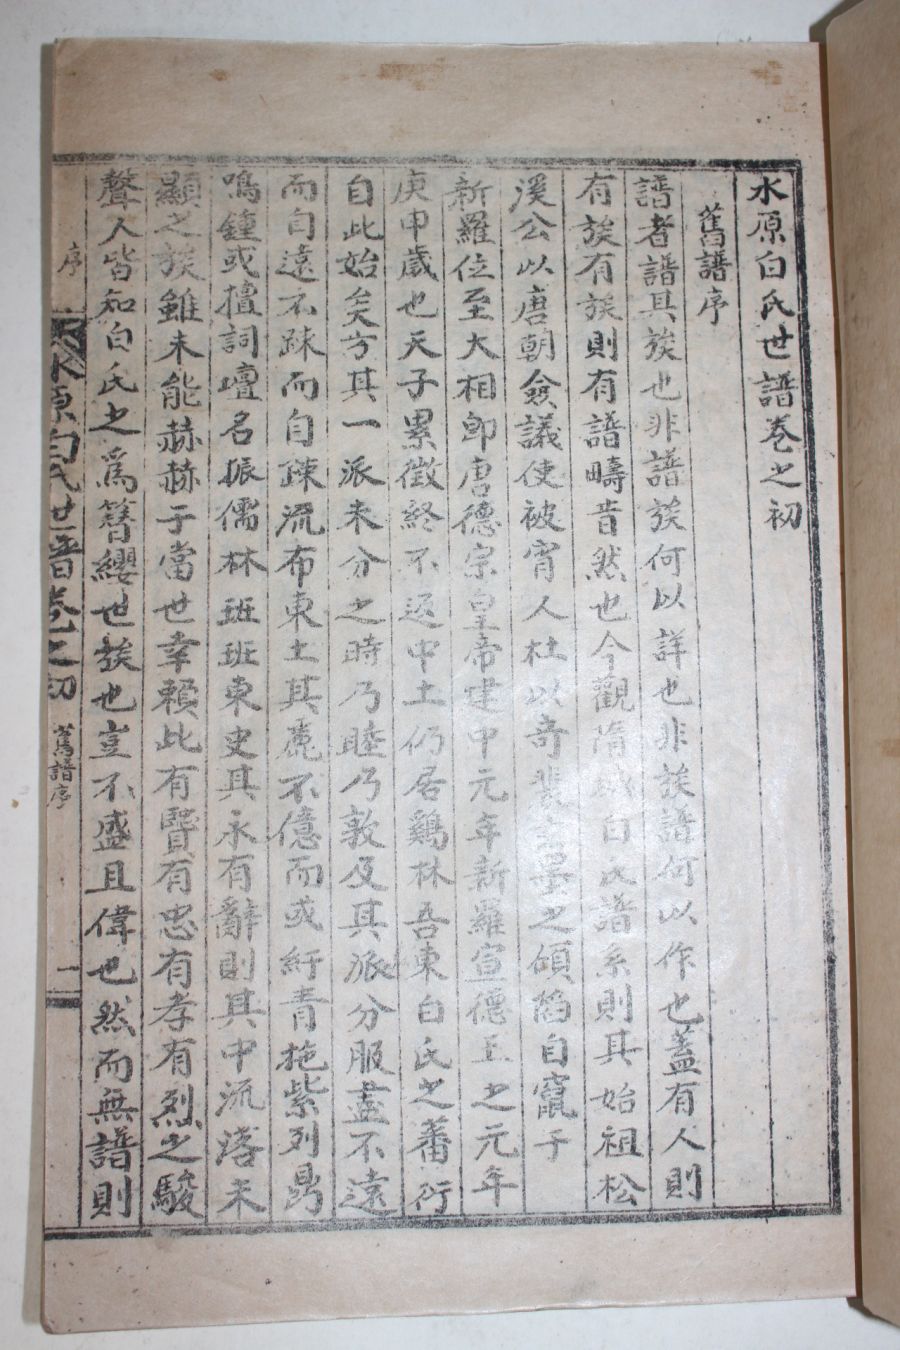 水原白氏世譜卷之初
舊譜序
譜者譜其族也非譜族何以詳也非族譜何以作也蓋有人則
有族有族則有譜疇昔然也今觀隋城白氏譜系則其始祖松
溪公以唐朝僉議使被宵人杜以奇裴之碩謟自竄于
新羅位至大相卽唐德宗皇帝建中元年新羅宣德王之元年
庚申歲也天子累徵終不返中土仍居鷄林吾東白氏之蕃衍
自此始矣方其一派未分之時乃睦乃敦及其派分服盡不遠
而自遠不疎而自疎流布東土其麗不億而或紆青拖紫列鼎
鳴鍾或擅詞壇名振儒林班班東史其永有辭則其中流落未
顯之族雖未能赫赫于當世幸賴此有賢有忠有孝有烈之駿
聲人皆知白氏之爲簪纓世族也豈不盛且偉也然而無譜則
序
水原白氏世譜卷之初 舊譜序 一